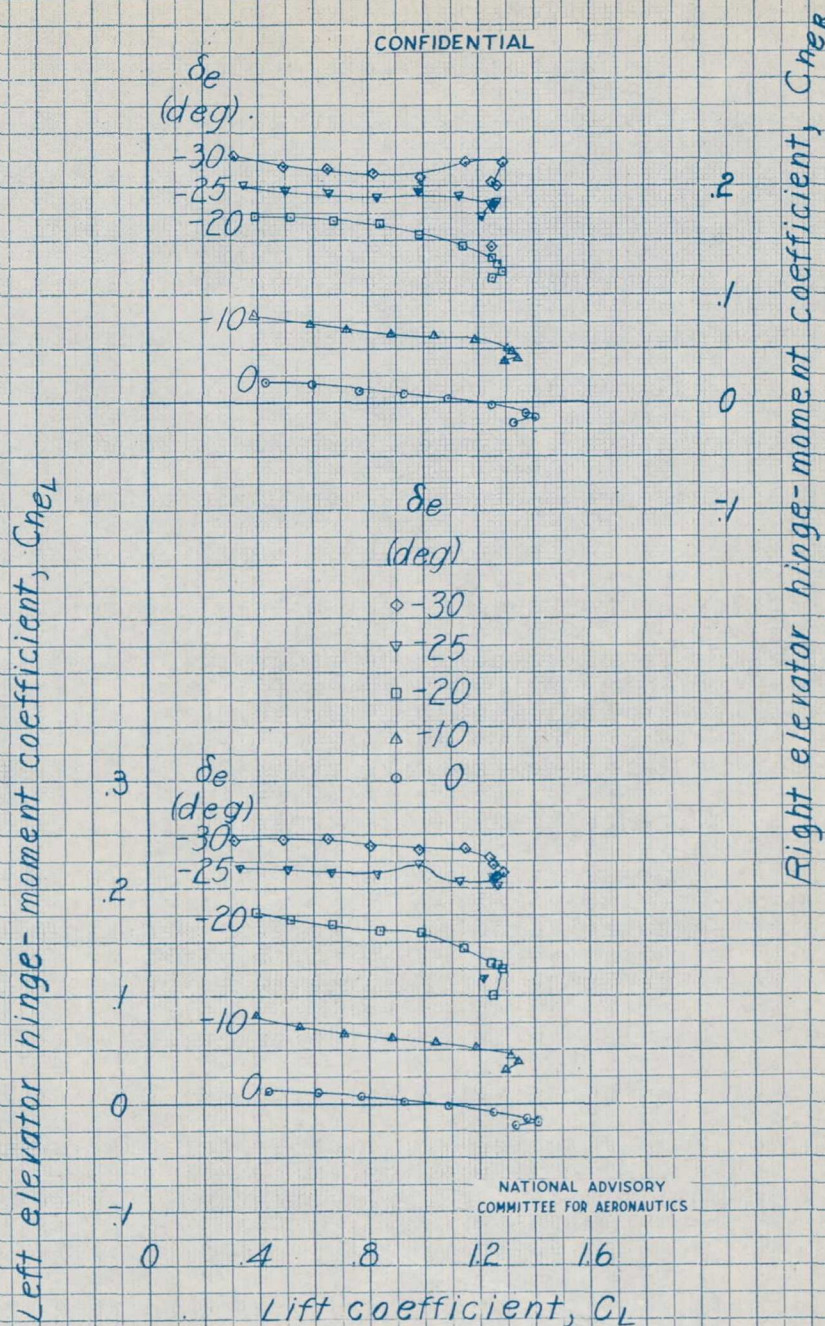 CONFIDENTIAL
δe
(deg)
-30
-25
-20
-10
0
.2
.1
0
-.1
Right elevator hinge-moment coefficient, CheR
δe
(deg)
-30
-25
-20
-10
0
Left elevator hinge-moment coefficient, CheL
.3
.2
.1
0
-.1
δe
(deg)
-30
-25
-20
-10
0
NATIONAL ADVISORY
COMMITTEE FOR AERONAUTICS
0 .4 .8 1.2 1.6
Lift coefficient, CL